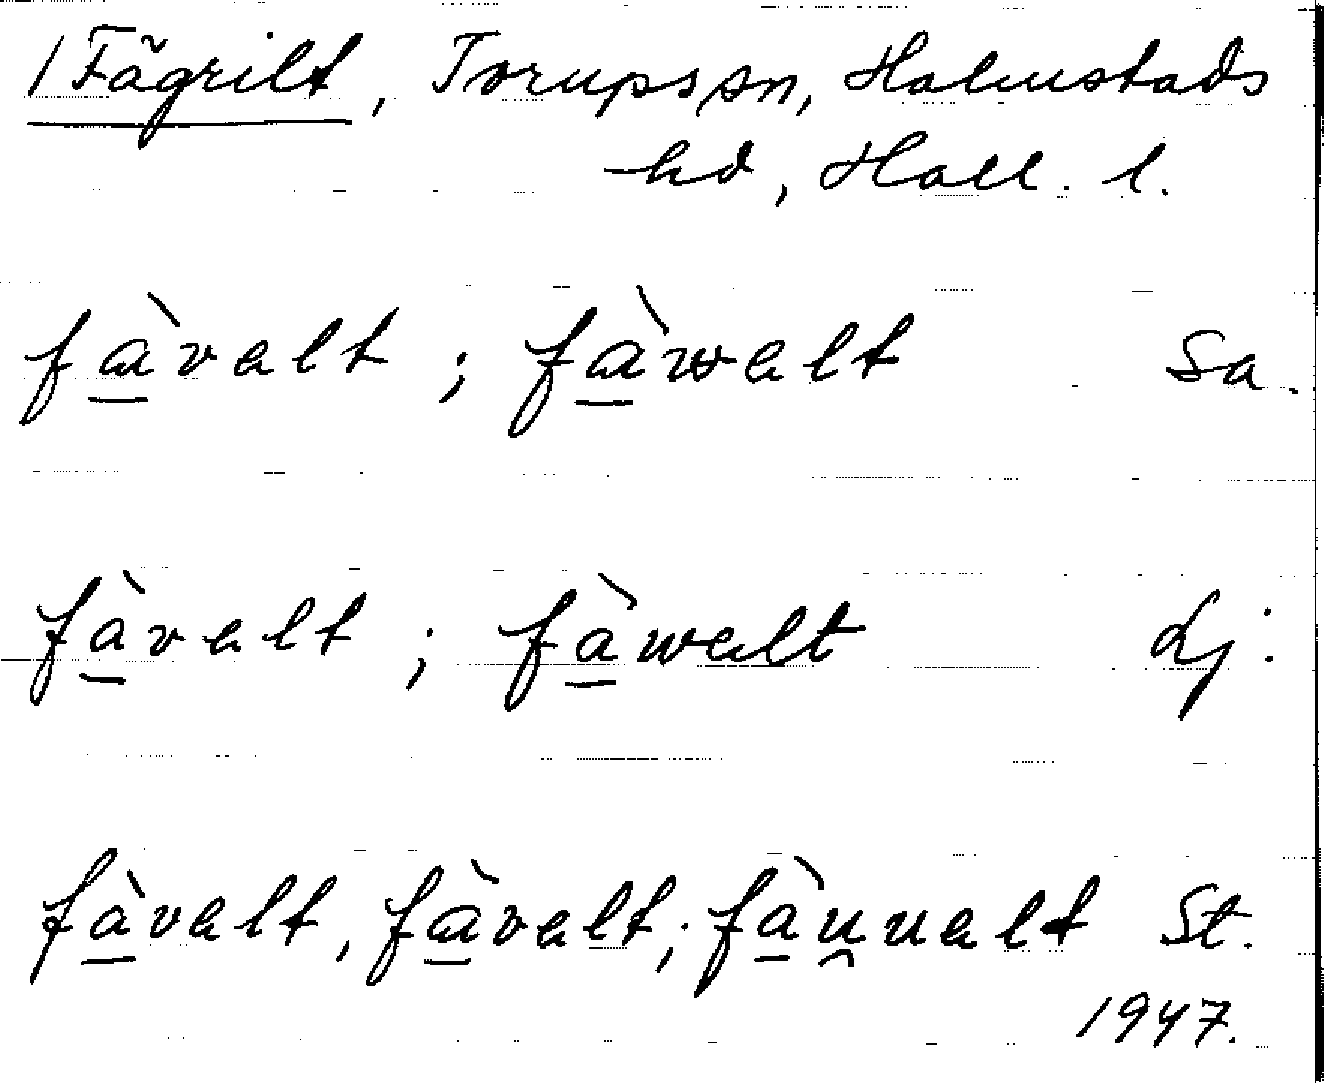 / Fägrilt, Torups sn, Halmstads
hd, Hall. l.
fà̲valt ; fà̲walt Sa.
fà̲valt ; fà̲walt Lj.
fà̲valt, fà̲valt; fà̲u̯ualt St.
1947.